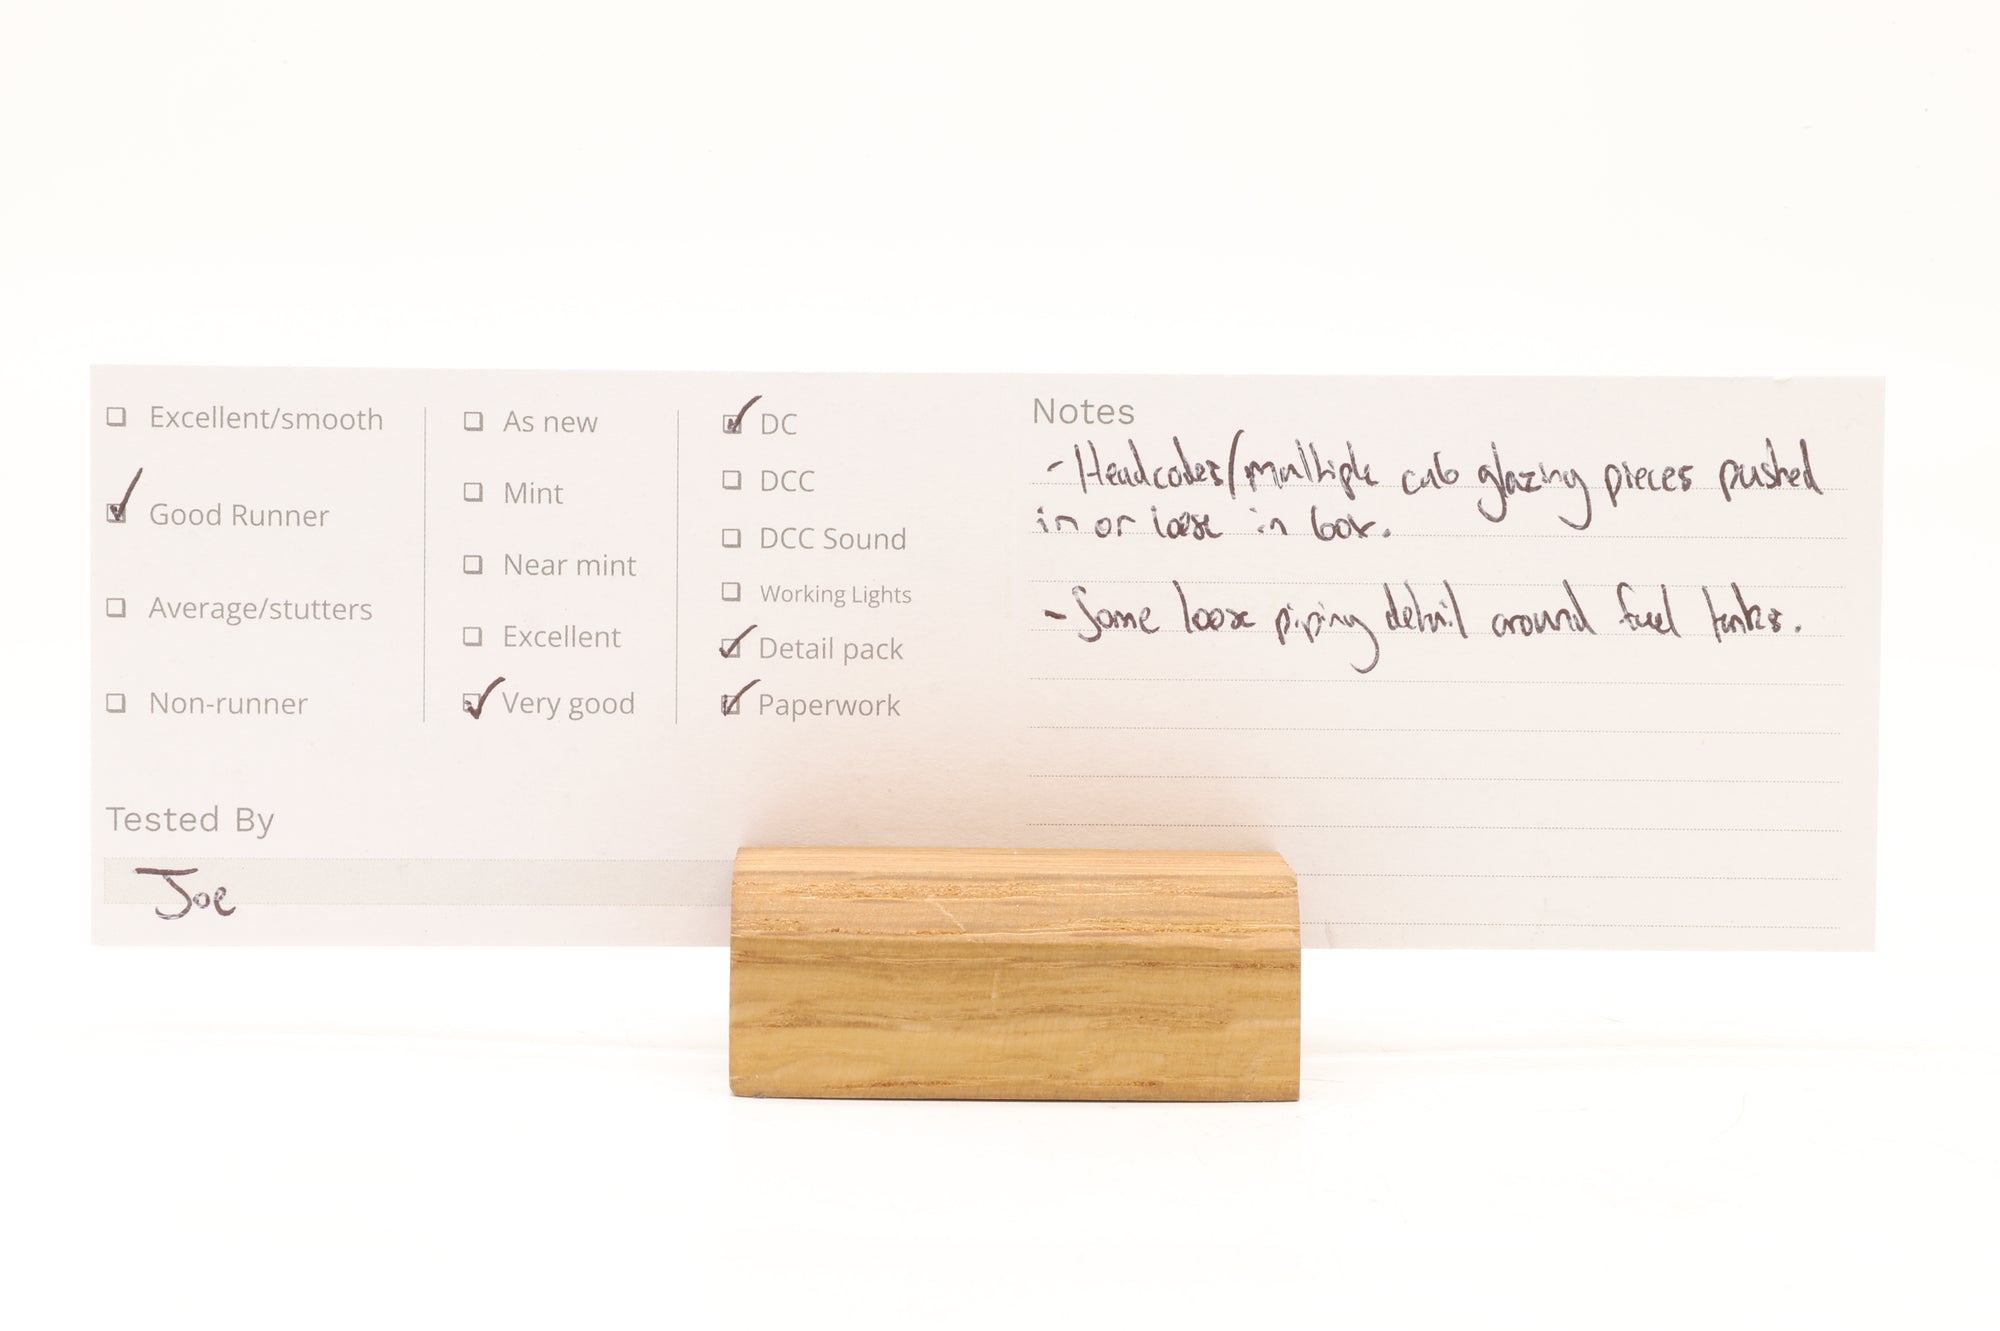 Excellent/smooth
Good Runner
Average/stutters
Non-runner
As new
Mint
Near mint
Excellent
Very good
DC
DCC
DCC Sound
Working Lights
Detail pack
Paperwork
Tested By
Joe
Notes
- Headcodes/multiple cab glazing pieces pushed
in or loose in box.
- Some loose piping detail around fuel tanks.